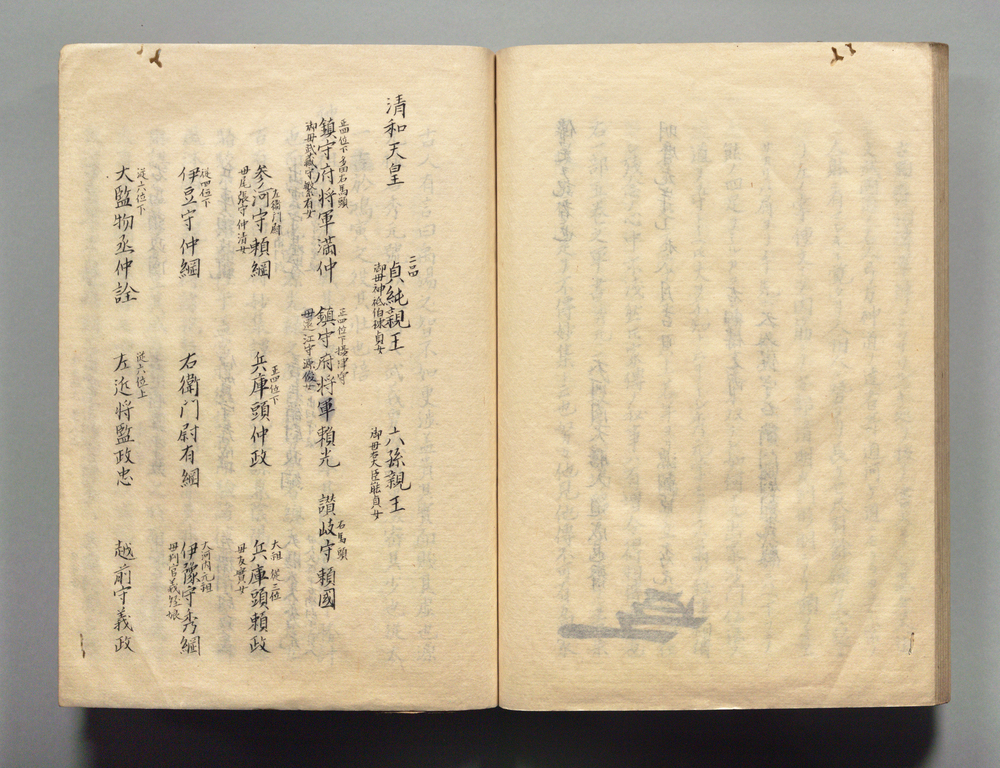 清和天皇
二品
貞純親王
御母神祇伯棟貞女
六孫親王
御母右大臣能貞女
正四位下多田右馬頭
鎮守府将軍満仲
御母武蔵守繁有女
正四位下摂津守
鎮守府将軍頼光
母近江守源俊女
右馬頭
讃岐守頼國
左衛門尉
参河守頼綱
母尾張守仲清女
正四位下
兵庫頭仲政
大祖従三位
兵庫頭頼政
母友實女
従四位下
伊豆守仲綱
右衛門尉有綱
大河内元祖
伊豫守秀綱
母判官義経娘
従六位下
大監物丞仲詮
従六位上
左近将監政忠
越前守義政